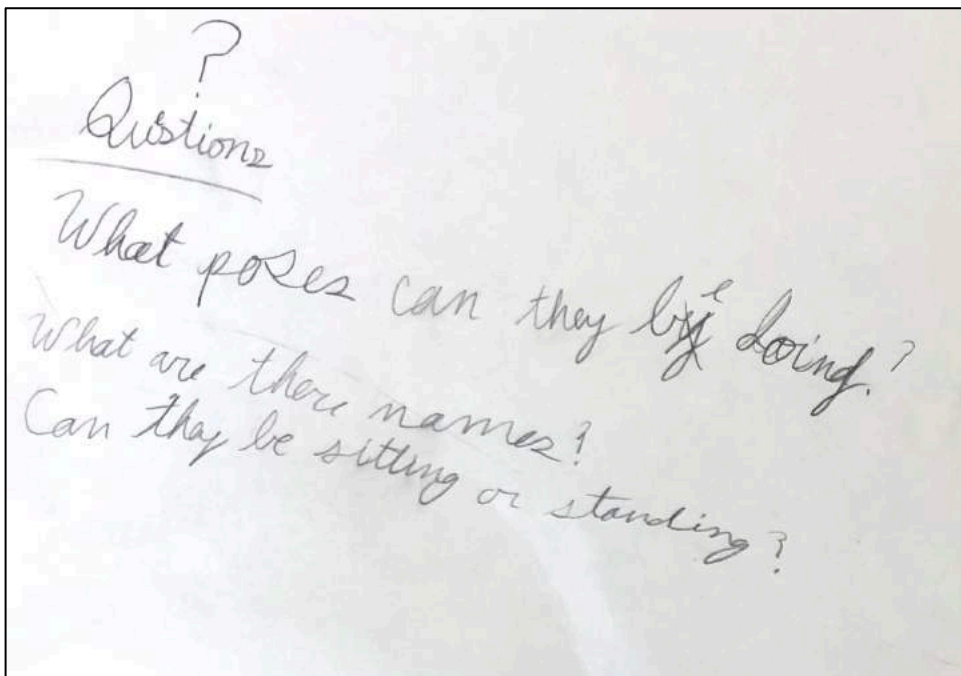 ?
Qustions
What poses can they be doing?
What are there names?
Can they be sitting or standing?